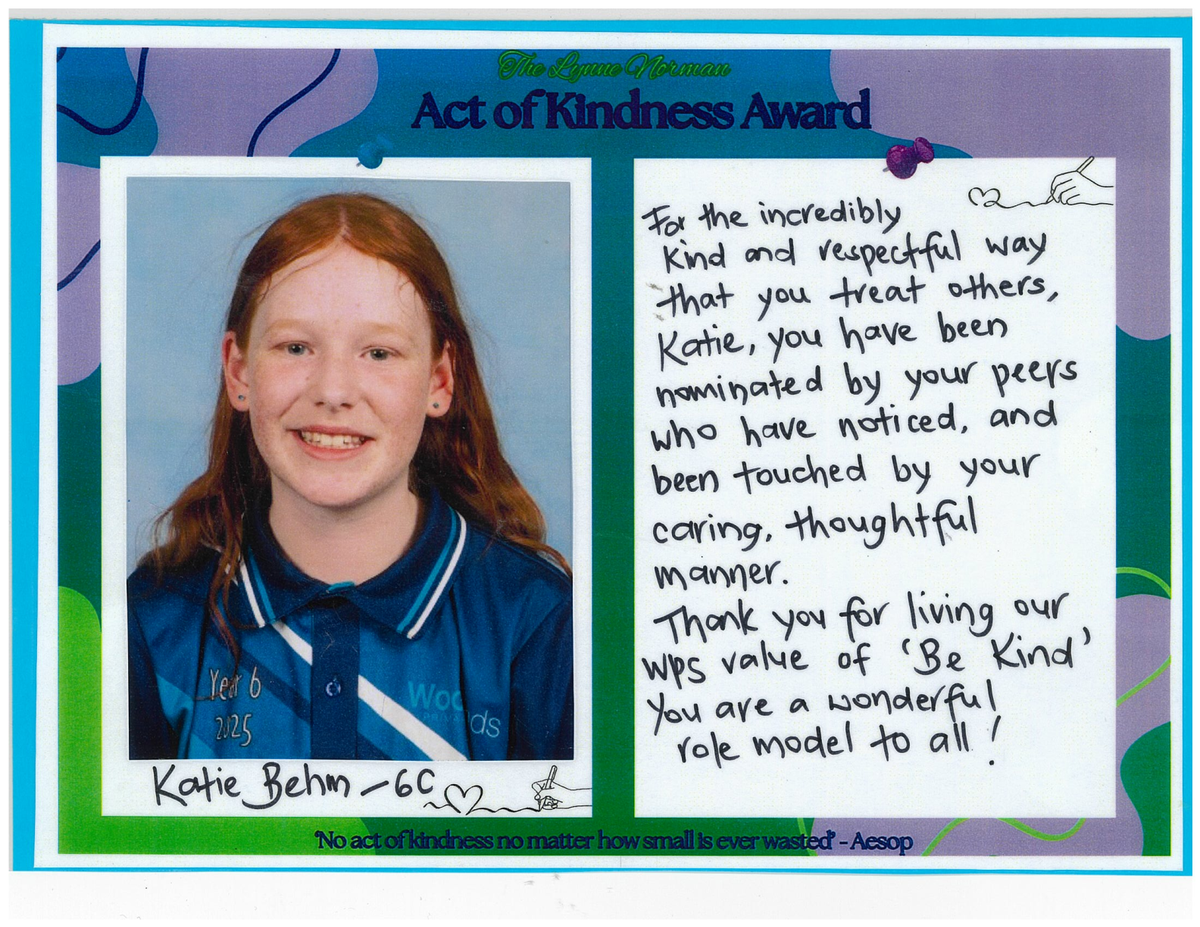 The Lynne Norman
Act of Kindness Award
For the incredibly
kind and respectful way
that you treat others,
Katie, you have been
nominated by your peers
who have noticed, and
been touched by your
caring, thoughtful
manner.
Thank you for living our
WPS value of 'Be Kind'
You are a wonderful
role model to all!
Year 6
2025
ds
Katie Behm - 6C
'No act of kindness no matter how small is ever wasted' - Aesop